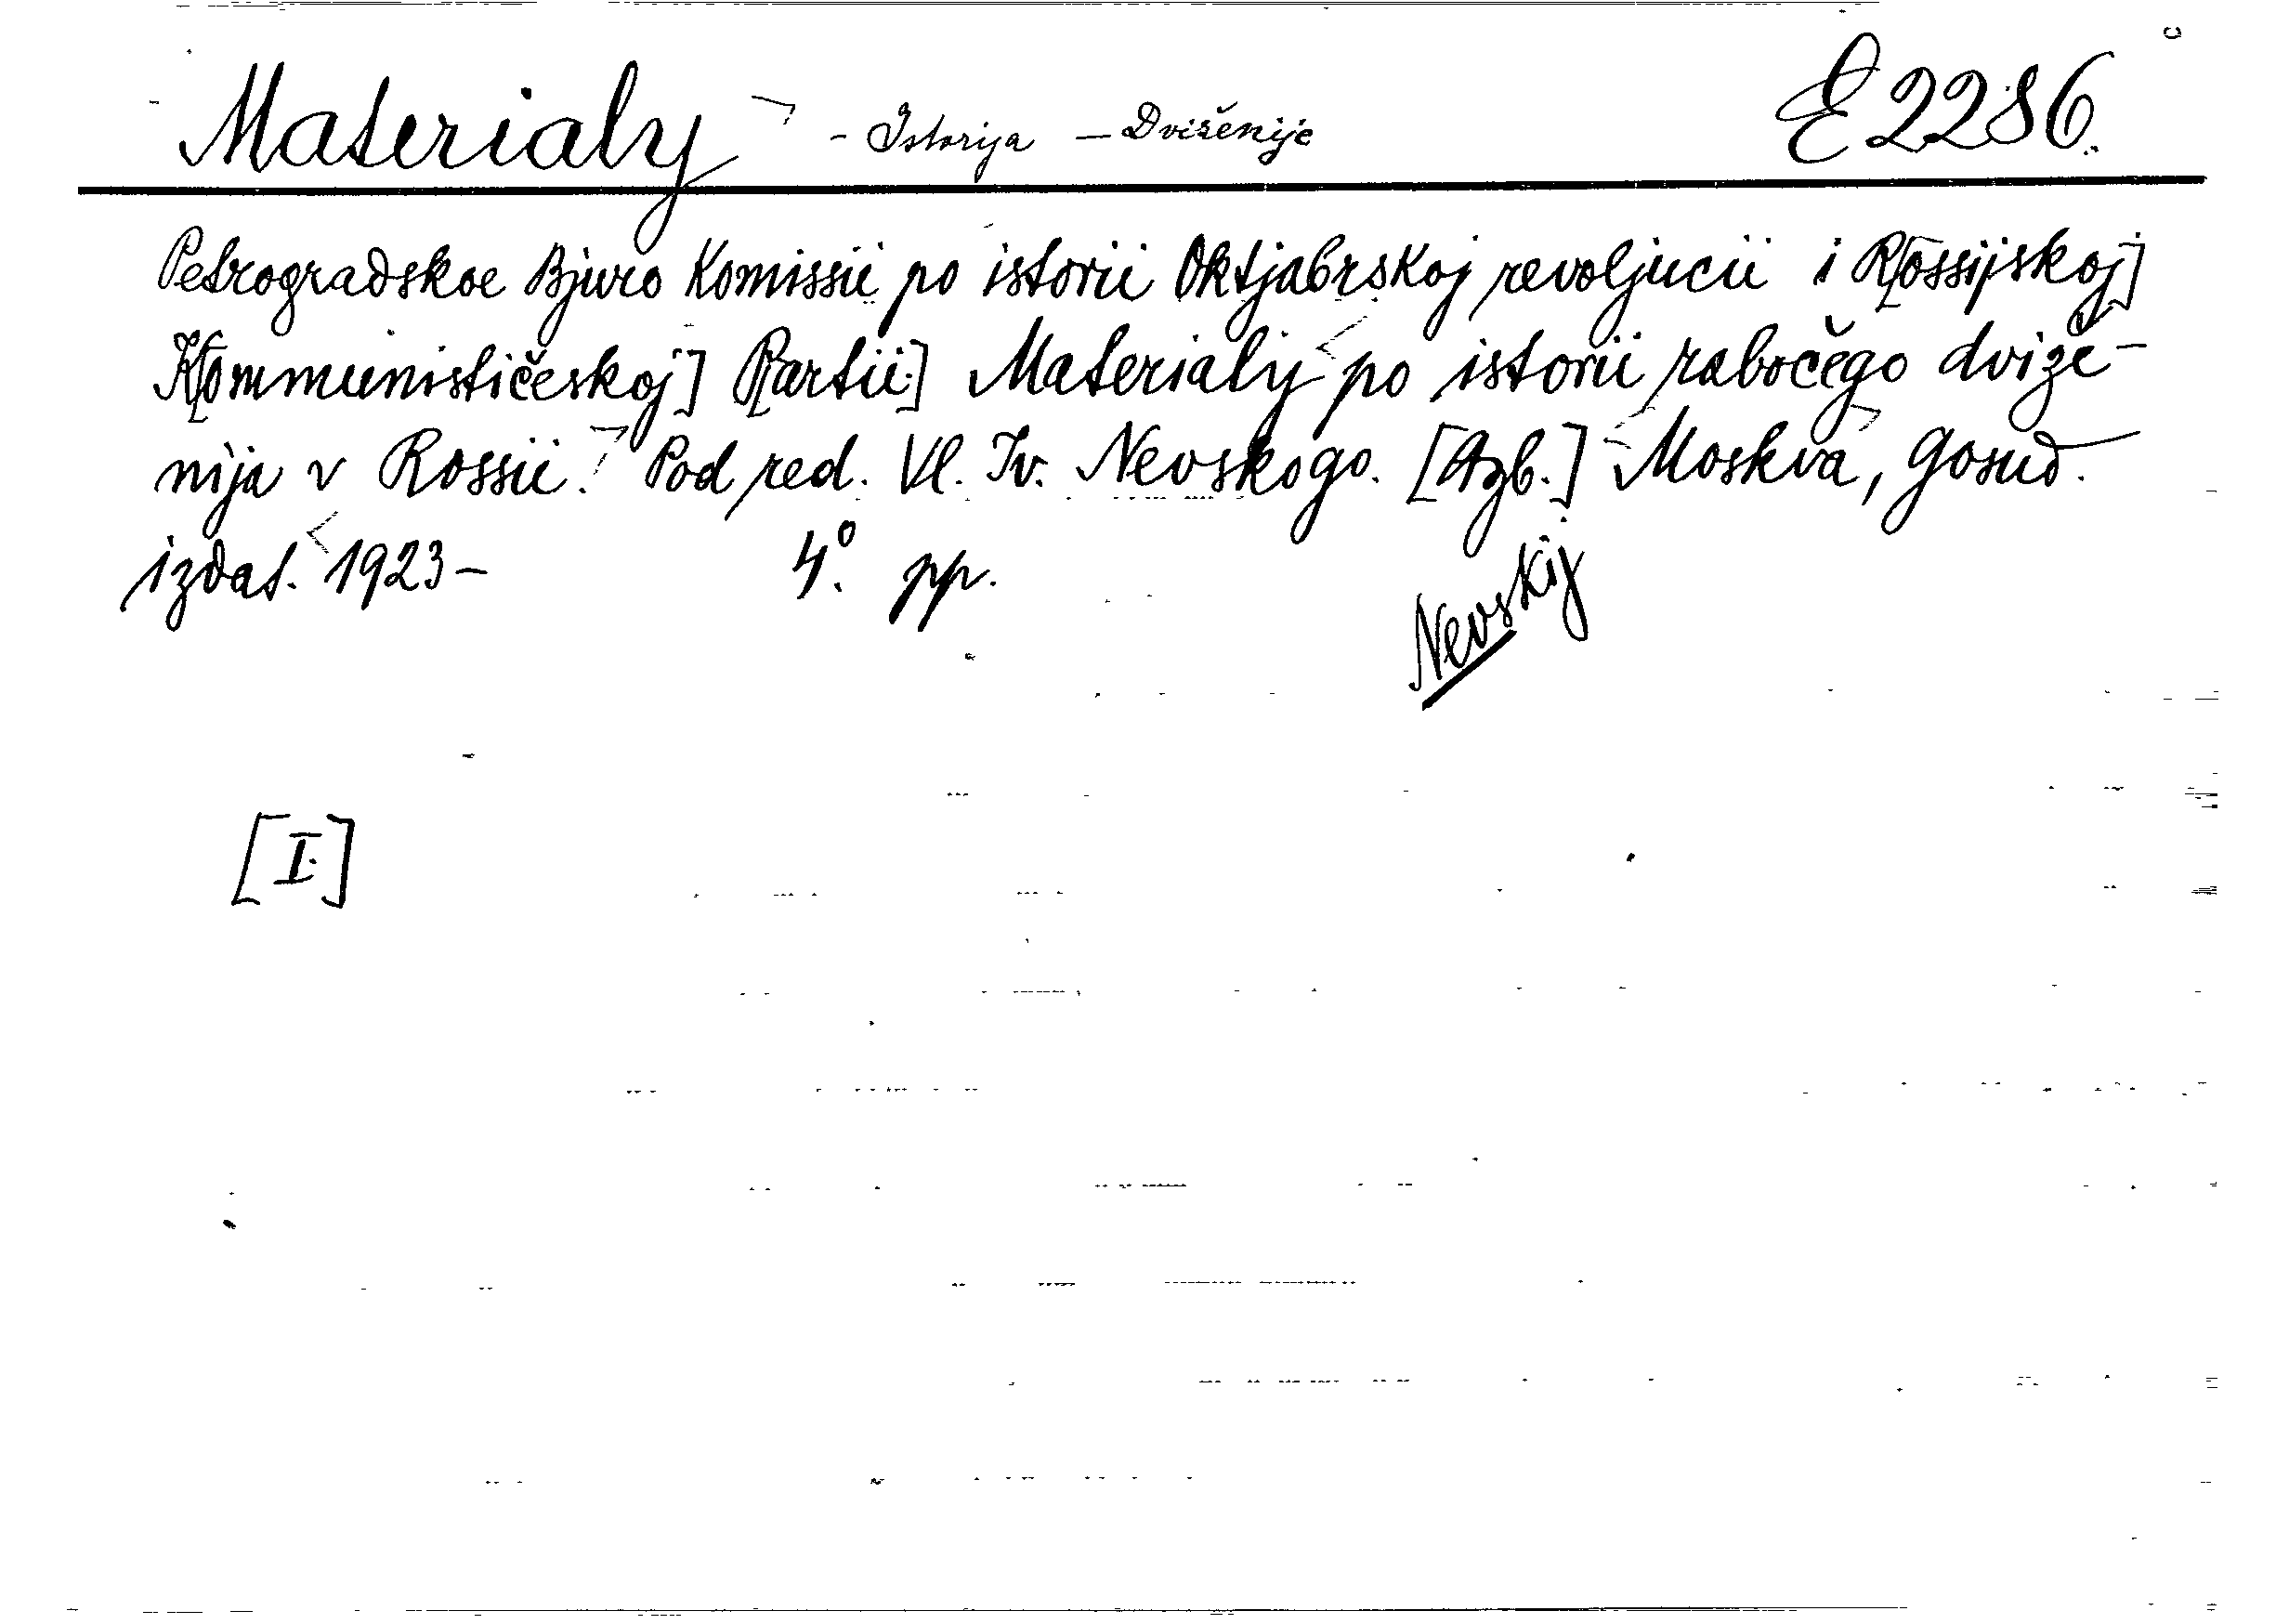 Materialy - Istorija — Dviženije E2286.
Petrogradskoe Bjuro Komissii po istorii Oktjabrskoj revoljucii i R[ossijskoj]
K[ommunističeskoj] P[artii.] Materialy po istorii rabočego dviže-
nija v Rossii. Pod red. Vl. Iv. Nevskogo. [Azb.] Moskva, Gosud.
izdat. 1923- 4°. pp.
Nevskij
[I.]